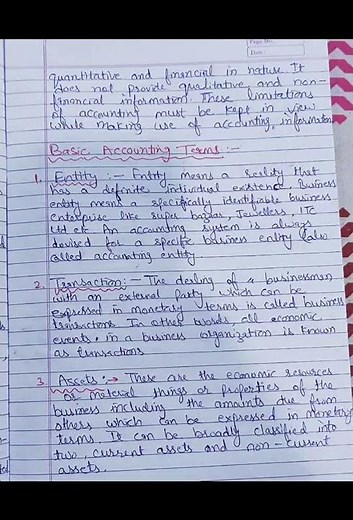 Page No.
Date:
quantitative and financial in nature It
does not provide qualitative and non-
financial information. These limitations
of accounting must be kept in view
while making use of accounting information
Basic Accounting Terms :-
1. Entity :- Entity means a reality that
has a definite individual existence. Business
entity means a specifically identifiable business
enterprise like super bazaar, Jewellers, ITC
Ltd etc. An accounting system is always
devised for a specific business entity (also
called accounting entity.
2. Transaction :- The dealing of a businessman
with an external Party which can be
expressed in monetary terms is called business
transactions In other words, all economic
events in a business organization is known
as transactions
3. Assets :→ These are the economic resources
or material things or properties of the
business including the amounts due from
others which can be expressed in monetary
terms. It can be broadly classified into
two, current assets and non-current
assets.